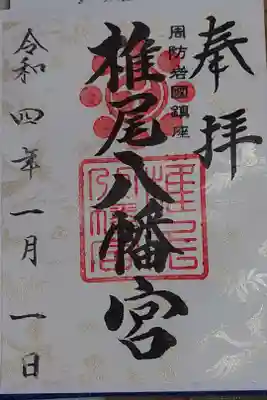 奉拝
周防岩國鎮座
椎尾八幡宮
椎尾八幡宮
令和四年一月一日